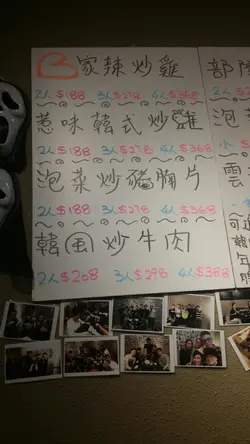 B家辣炒雞
2人$188 3人$278 4人$368
惹味韓式炒雞
2人$188 3人$278 4人$368
泡菜炒豬腩片
2人$188 3人$278 4人$368
韓(風)炒牛肉
2人$208 3人$298 4人$388
部
泡
雲
可
韓
年